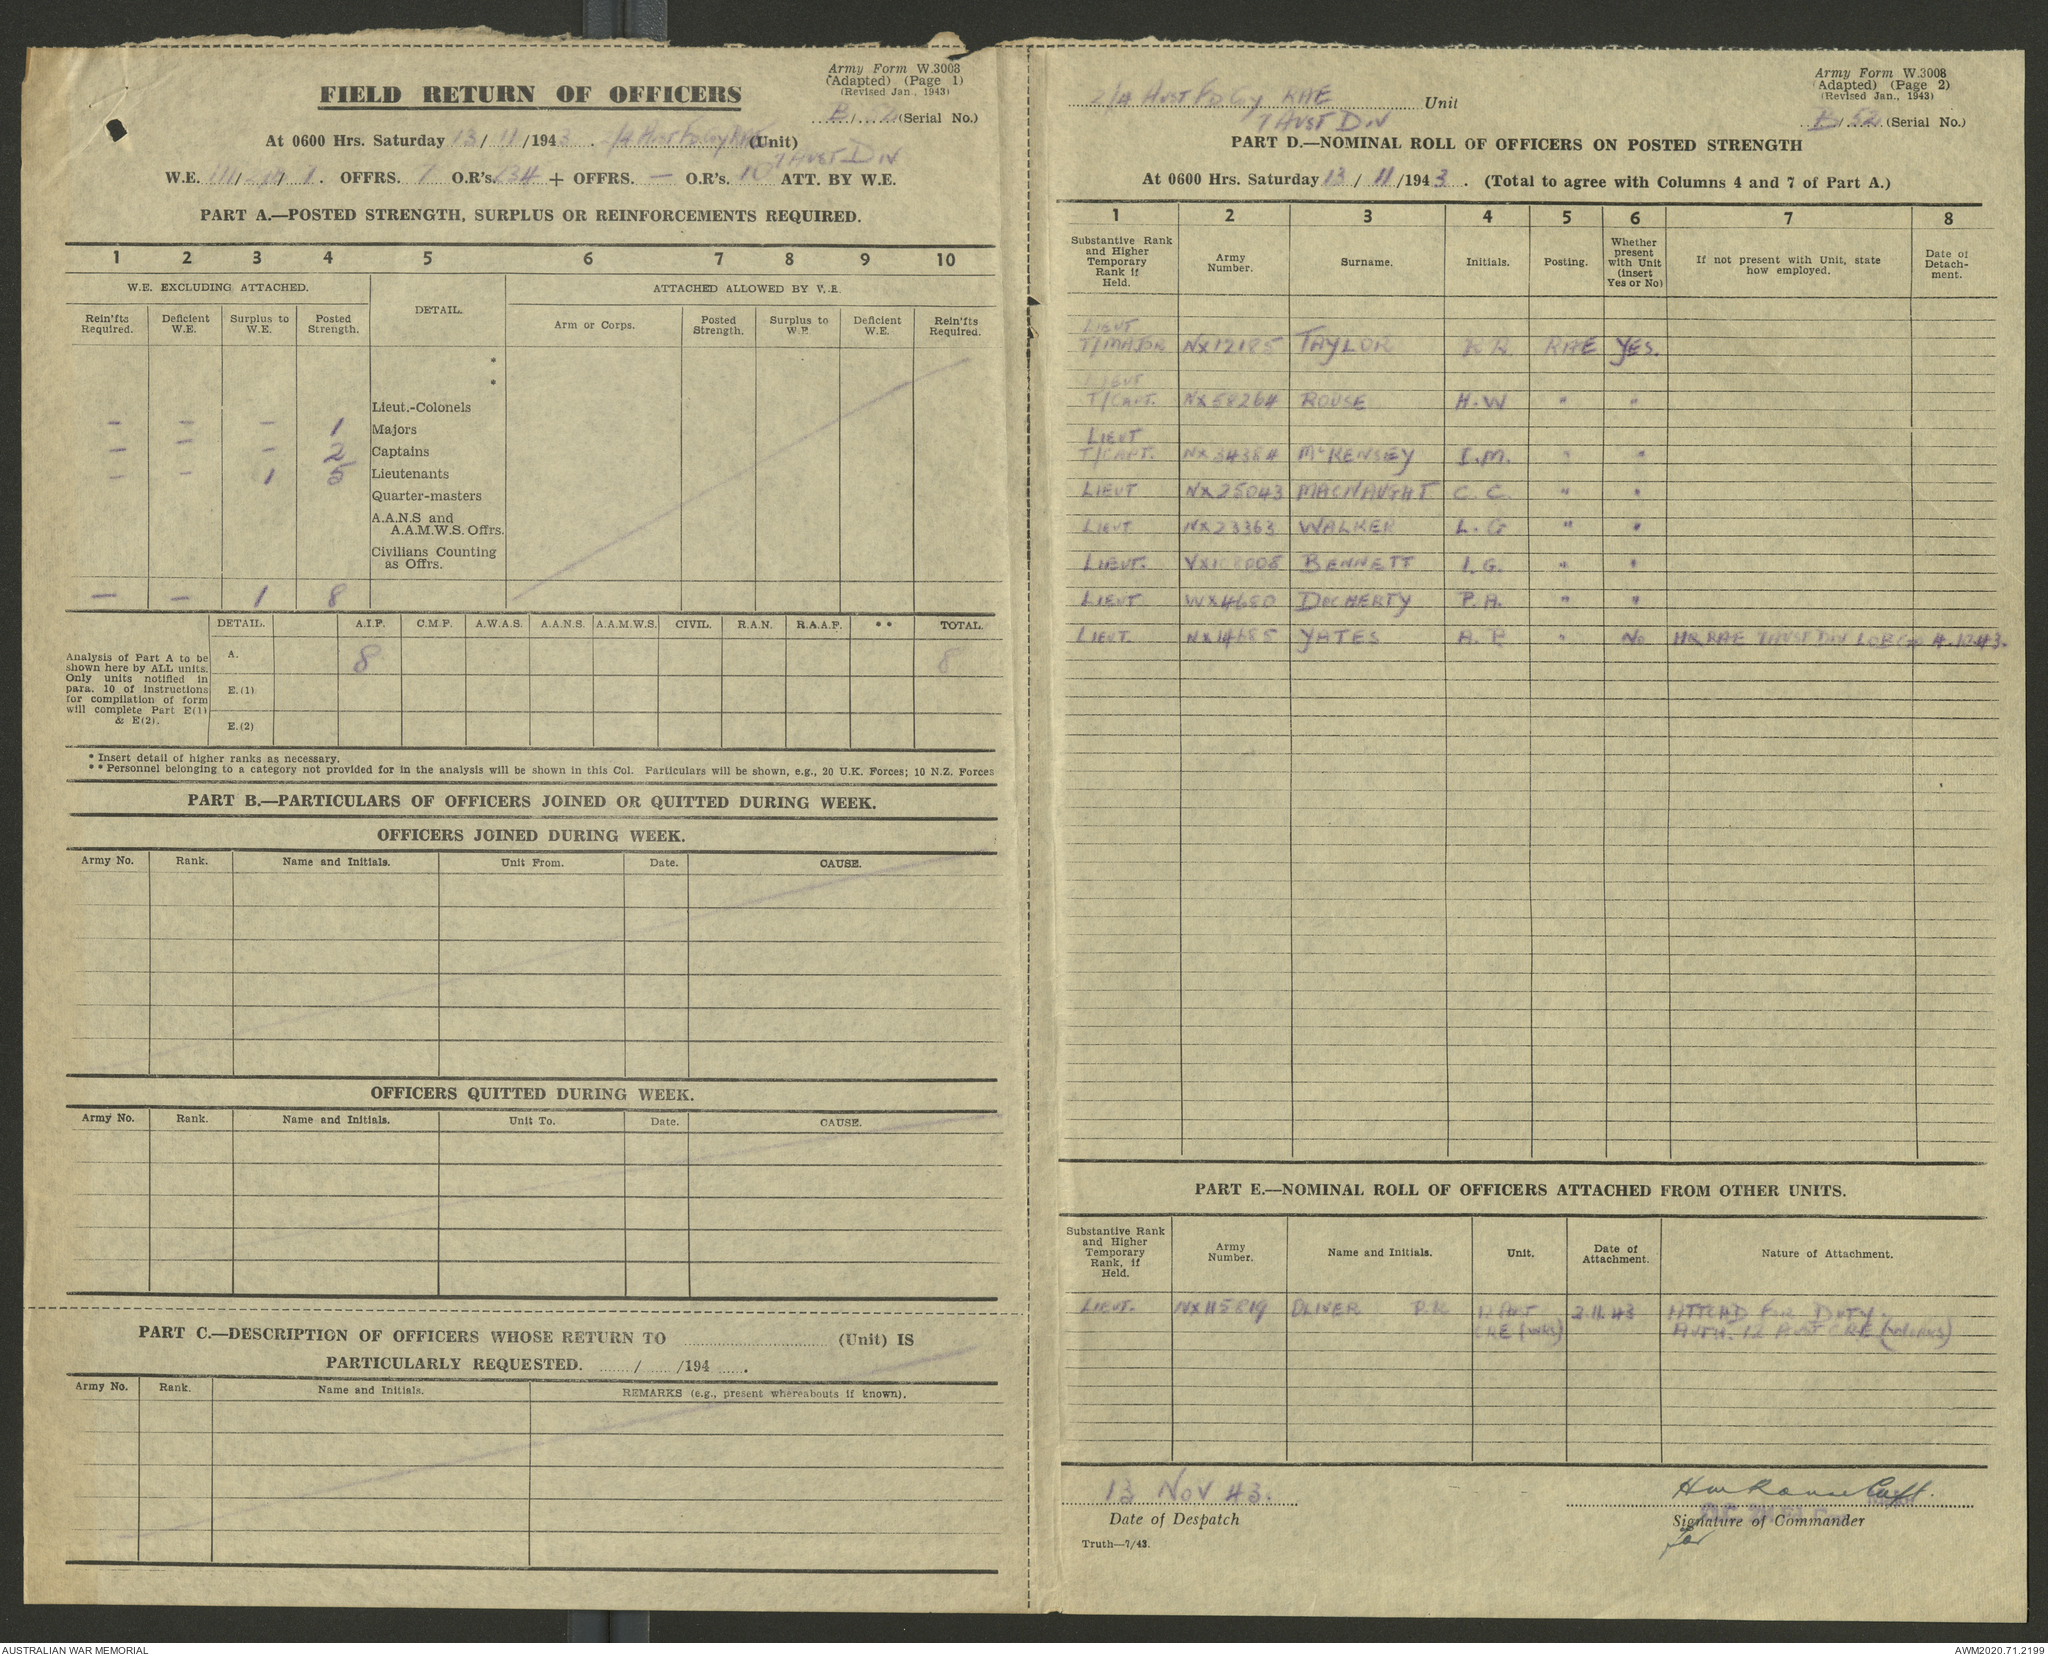 Army Form W.3008
(Adapted) (Page 1)
(Revised Jan., 1943)
FIELD RETURN OF OFFICERS
(Serial No.)
At 0600 Hrs. Saturday 13/11/1943. 2/4 Aust Fd Coy RAE (Unit)
7 Aust Div
W.E. OFFRS. 7 O.R's. 234 + OFFRS. — O.R's. 10 ATT. BY W.E.
PART A.—POSTED STRENGTH, SURPLUS OR REINFORCEMENTS REQUIRED.
1 2 3 4 5 6 7 8 9 10
W.E. EXCLUDING ATTACHED. DETAIL. ATTACHED ALLOWED BY W.E.
Rein'fts Required. Deficient W.E. Surplus to W.E. Posted Strength. Arm or Corps. Posted Strength. Surplus to W.E. Deficient W.E. Rein'fts Required.
*
*
Lieut.-Colonels
— — — 1 Majors
— — — 2 Captains
— — 1 5 Lieutenants
Quarter-masters
A.A.N.S and
A.A.M.W.S. Offrs.
Civilians Counting
as Offrs.
— — 1 8
DETAIL. A.I.F. C.M.F. A.W.A.S. A.A.N.S. A.A.M.W.S. CIVIL. R.A.N. R.A.A.F. ** TOTAL.
Analysis of Part A to be
shown here by ALL units.
Only units notified in
para. 10 of instructions
for compilation of form
will complete Part E(1)
& E(2).
A. 8 8
E.(1)
E.(2)
* Insert detail of higher ranks as necessary.
** Personnel belonging to a category not provided for in the analysis will be shown in this Col. Particulars will be shown, e.g., 20 U.K. Forces; 10 N.Z. Forces
PART B.—PARTICULARS OF OFFICERS JOINED OR QUITTED DURING WEEK.
OFFICERS JOINED DURING WEEK.
Army No. Rank. Name and Initials. Unit From. Date. CAUSE.
OFFICERS QUITTED DURING WEEK.
Army No. Rank. Name and Initials. Unit To. Date. CAUSE.
PART C.—DESCRIPTION OF OFFICERS WHOSE RETURN TO (Unit) IS
PARTICULARLY REQUESTED. / /194 .
Army No. Rank. Name and Initials. REMARKS (e.g., present whereabouts if known).
Army Form W.3008
(Adapted) (Page 2)
(Revised Jan., 1943)
2/4 Aust Fd Coy RAE Unit
7 Aust Div
B/52 (Serial No.)
PART D.—NOMINAL ROLL OF OFFICERS ON POSTED STRENGTH
At 0600 Hrs. Saturday 13/11/1943. (Total to agree with Columns 4 and 7 of Part A.)
1 2 3 4 5 6 7 8
Substantive Rank and Higher Temporary Rank if Held. Army Number. Surname. Initials. Posting. Whether present with Unit (insert Yes or No) If not present with Unit, state how employed. Date of Detach-ment.
LIEUT
T/MAJOR NX12185 TAYLOR K R. RAE YES.
LIEUT
T/CAPT. NX58264 ROUSE H.W " "
LIEUT
T/CAPT. NX34384 McKENSEY " "
LIEUT NX25043 MACNAUGHT C. C. " "
LIEUT NX23363 WALKER L. G " "
LIEUT. BENNETT I. G. " "
LIEUT WX4680 DOCHERTY P. A. " "
LIEUT. NX14685 YATES " No HQ RAE 7 AUST DIV
PART E.—NOMINAL ROLL OF OFFICERS ATTACHED FROM OTHER UNITS.
Substantive Rank and Higher Temporary Rank, if Held. Army Number. Name and Initials. Unit. Date of Attachment. Nature of Attachment.
LIEUT. NX115819 OLIVER 12 AUST 3.11.43 ATTCHD FOR DUTY.
CRE (WKS) AUTH. 12 AUST CRE (WORKS)
13 NOV 43. HW Rouse Capt.
Date of Despatch Signature of Commander
for
Truth—7/43.
AUSTRALIAN WAR MEMORIAL AWM2020.71.2199